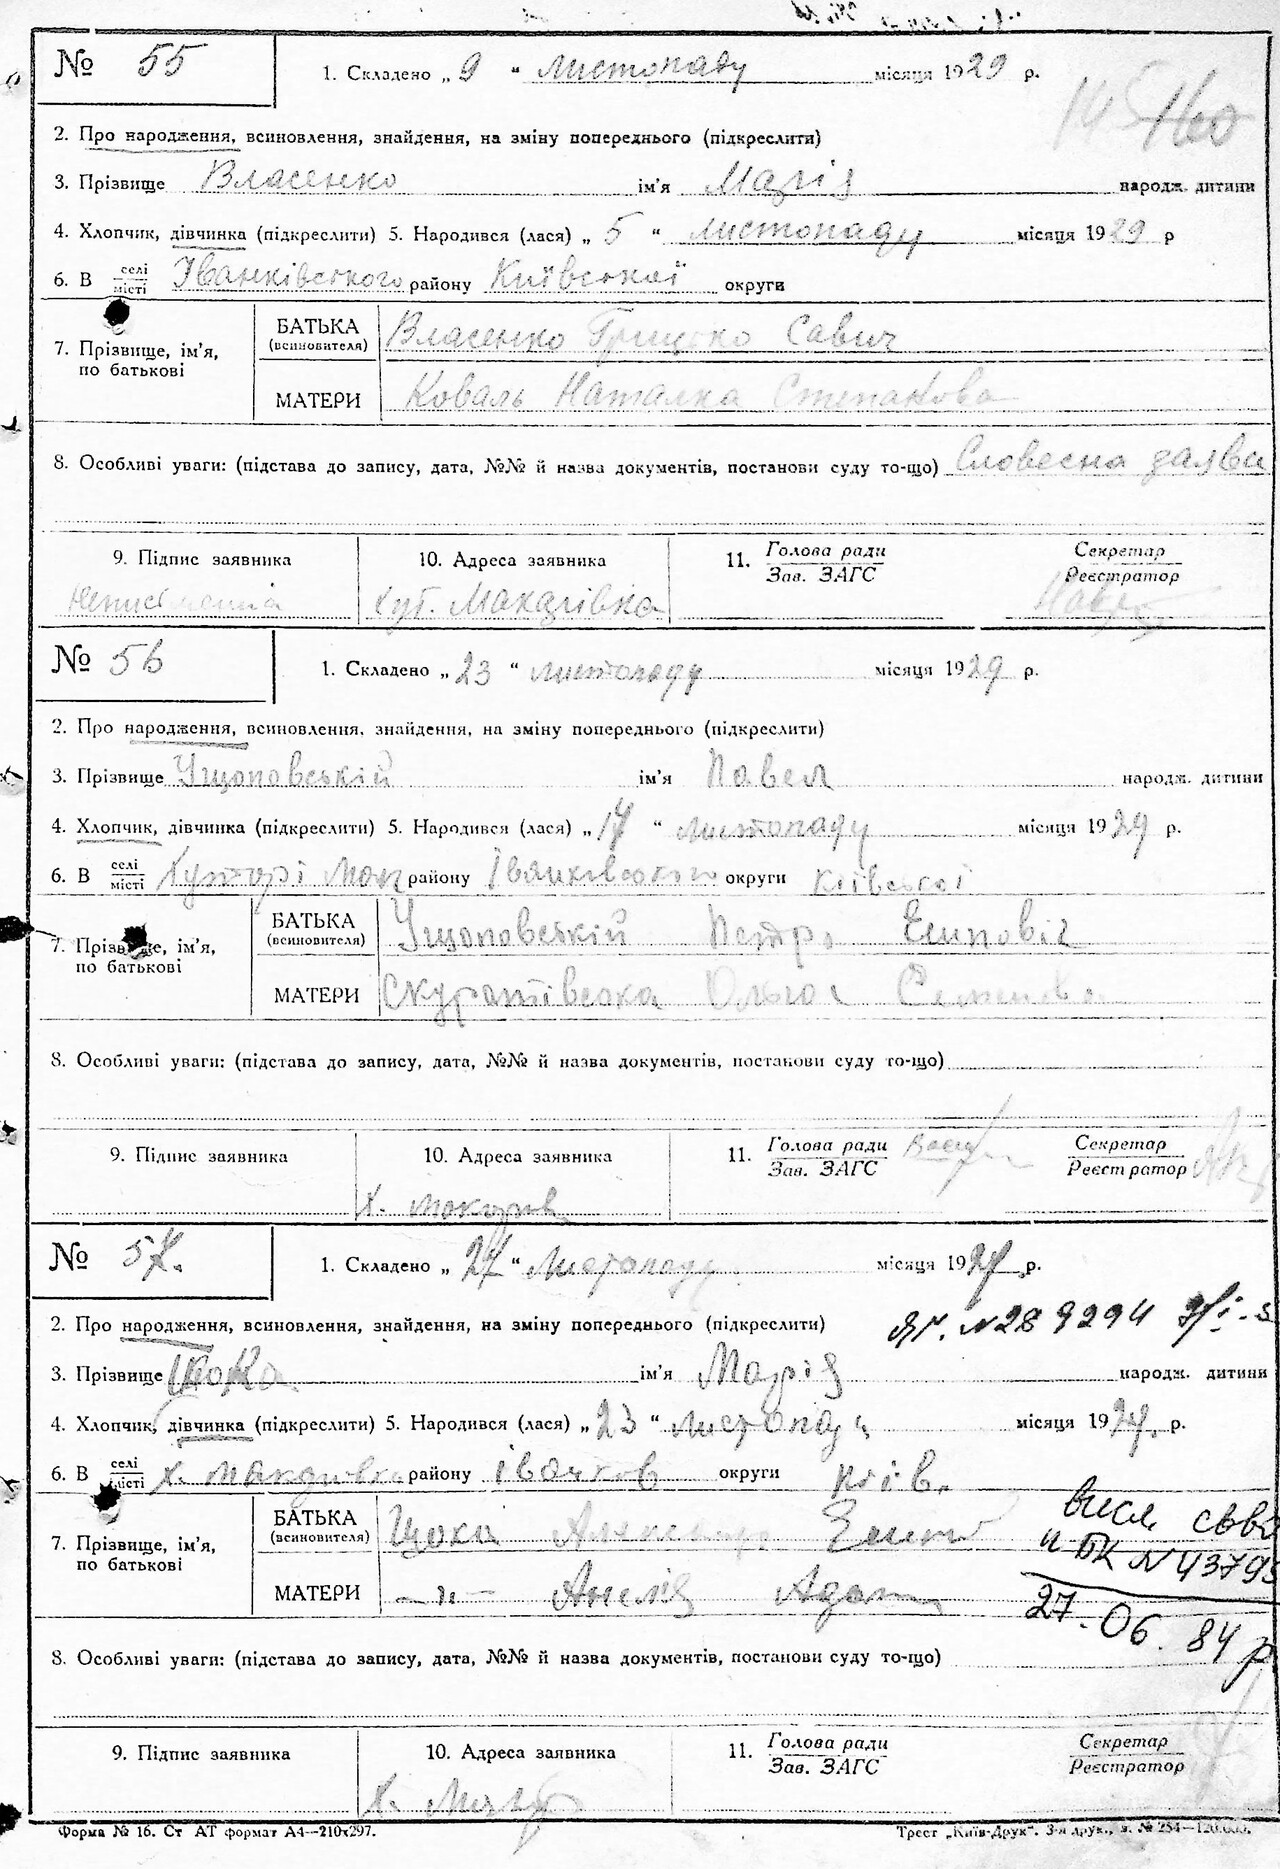 № 55
1. Складено „ 9 “ листопаду місяця 1929 р.
145 160
2. Про народження, всиновлення, знайдення, на зміну попереднього (підкреслити)
3. Прізвище Власенко ім'я Марія народж. дитини
4. Хлопчик, дівчинка (підкреслити) 5. Народився (лася) „ 5 “ листопаду місяця 1929 р
6. В селі місті Іванківського району Київської округи
7. Прізвище, ім'я, по батькові
БАТЬКА (всиновителя) Власенко Грицько Савич
МАТЕРИ Коваль Наталка Степанова
8. Особливі уваги: (підстава до запису, дата, №№ й назва документів, постанови суду то-що) Словесна заява
9. Підпис заявника
10. Адреса заявника
11. Голова ради Зав. ЗАГС
Секретар Реєстратор
Неписьменна
хут. Макарівка
№ 56
1. Складено „ 23 “ листопаду місяця 1929 р.
2. Про народження, всиновлення, знайдення, на зміну попереднього (підкреслити)
3. Прізвище Ущаповській ім'я Павел народж. дитини
4. Хлопчик, дівчинка (підкреслити) 5. Народився (лася) „ 17 “ листопаду місяця 1929 р.
6. В селі місті Хуторі Мак району Іванковського округи Київської
7. Прізвище, ім'я, по батькові
БАТЬКА (всиновителя) Ущаповській Петро Есипович
МАТЕРИ Скуратівська Ольга
8. Особливі уваги: (підстава до запису, дата, №№ й назва документів, постанови суду то-що)
9. Підпис заявника
10. Адреса заявника
11. Голова ради Зав. ЗАГС
Секретар Реєстратор
х. Макарів
№ 57.
1. Складено „ 27 “ Листопаду місяця 1929 р.
2. Про народження, всиновлення, знайдення, на зміну попереднього (підкреслити)
3. Прізвище ім'я Марія народж. дитини
4. Хлопчик, дівчинка (підкреслити) 5. Народився (лася) „ 23 “ Листопаду місяця 1929 р.
6. В селі місті х. Макарівка району Іванков округи Київ.
7. Прізвище, ім'я, по батькові
БАТЬКА (всиновителя) Цока
МАТЕРИ —"— Анелія Адам
27.06.84 р
8. Особливі уваги: (підстава до запису, дата, №№ й назва документів, постанови суду то-що)
9. Підпис заявника
10. Адреса заявника
11. Голова ради Зав. ЗАГС
Секретар Реєстратор
х. Макар
Форма № 16. Ст АТ формат А4—210х297.
Трест „Київ-Друк". 3-я друк., з. № 254—120.000.